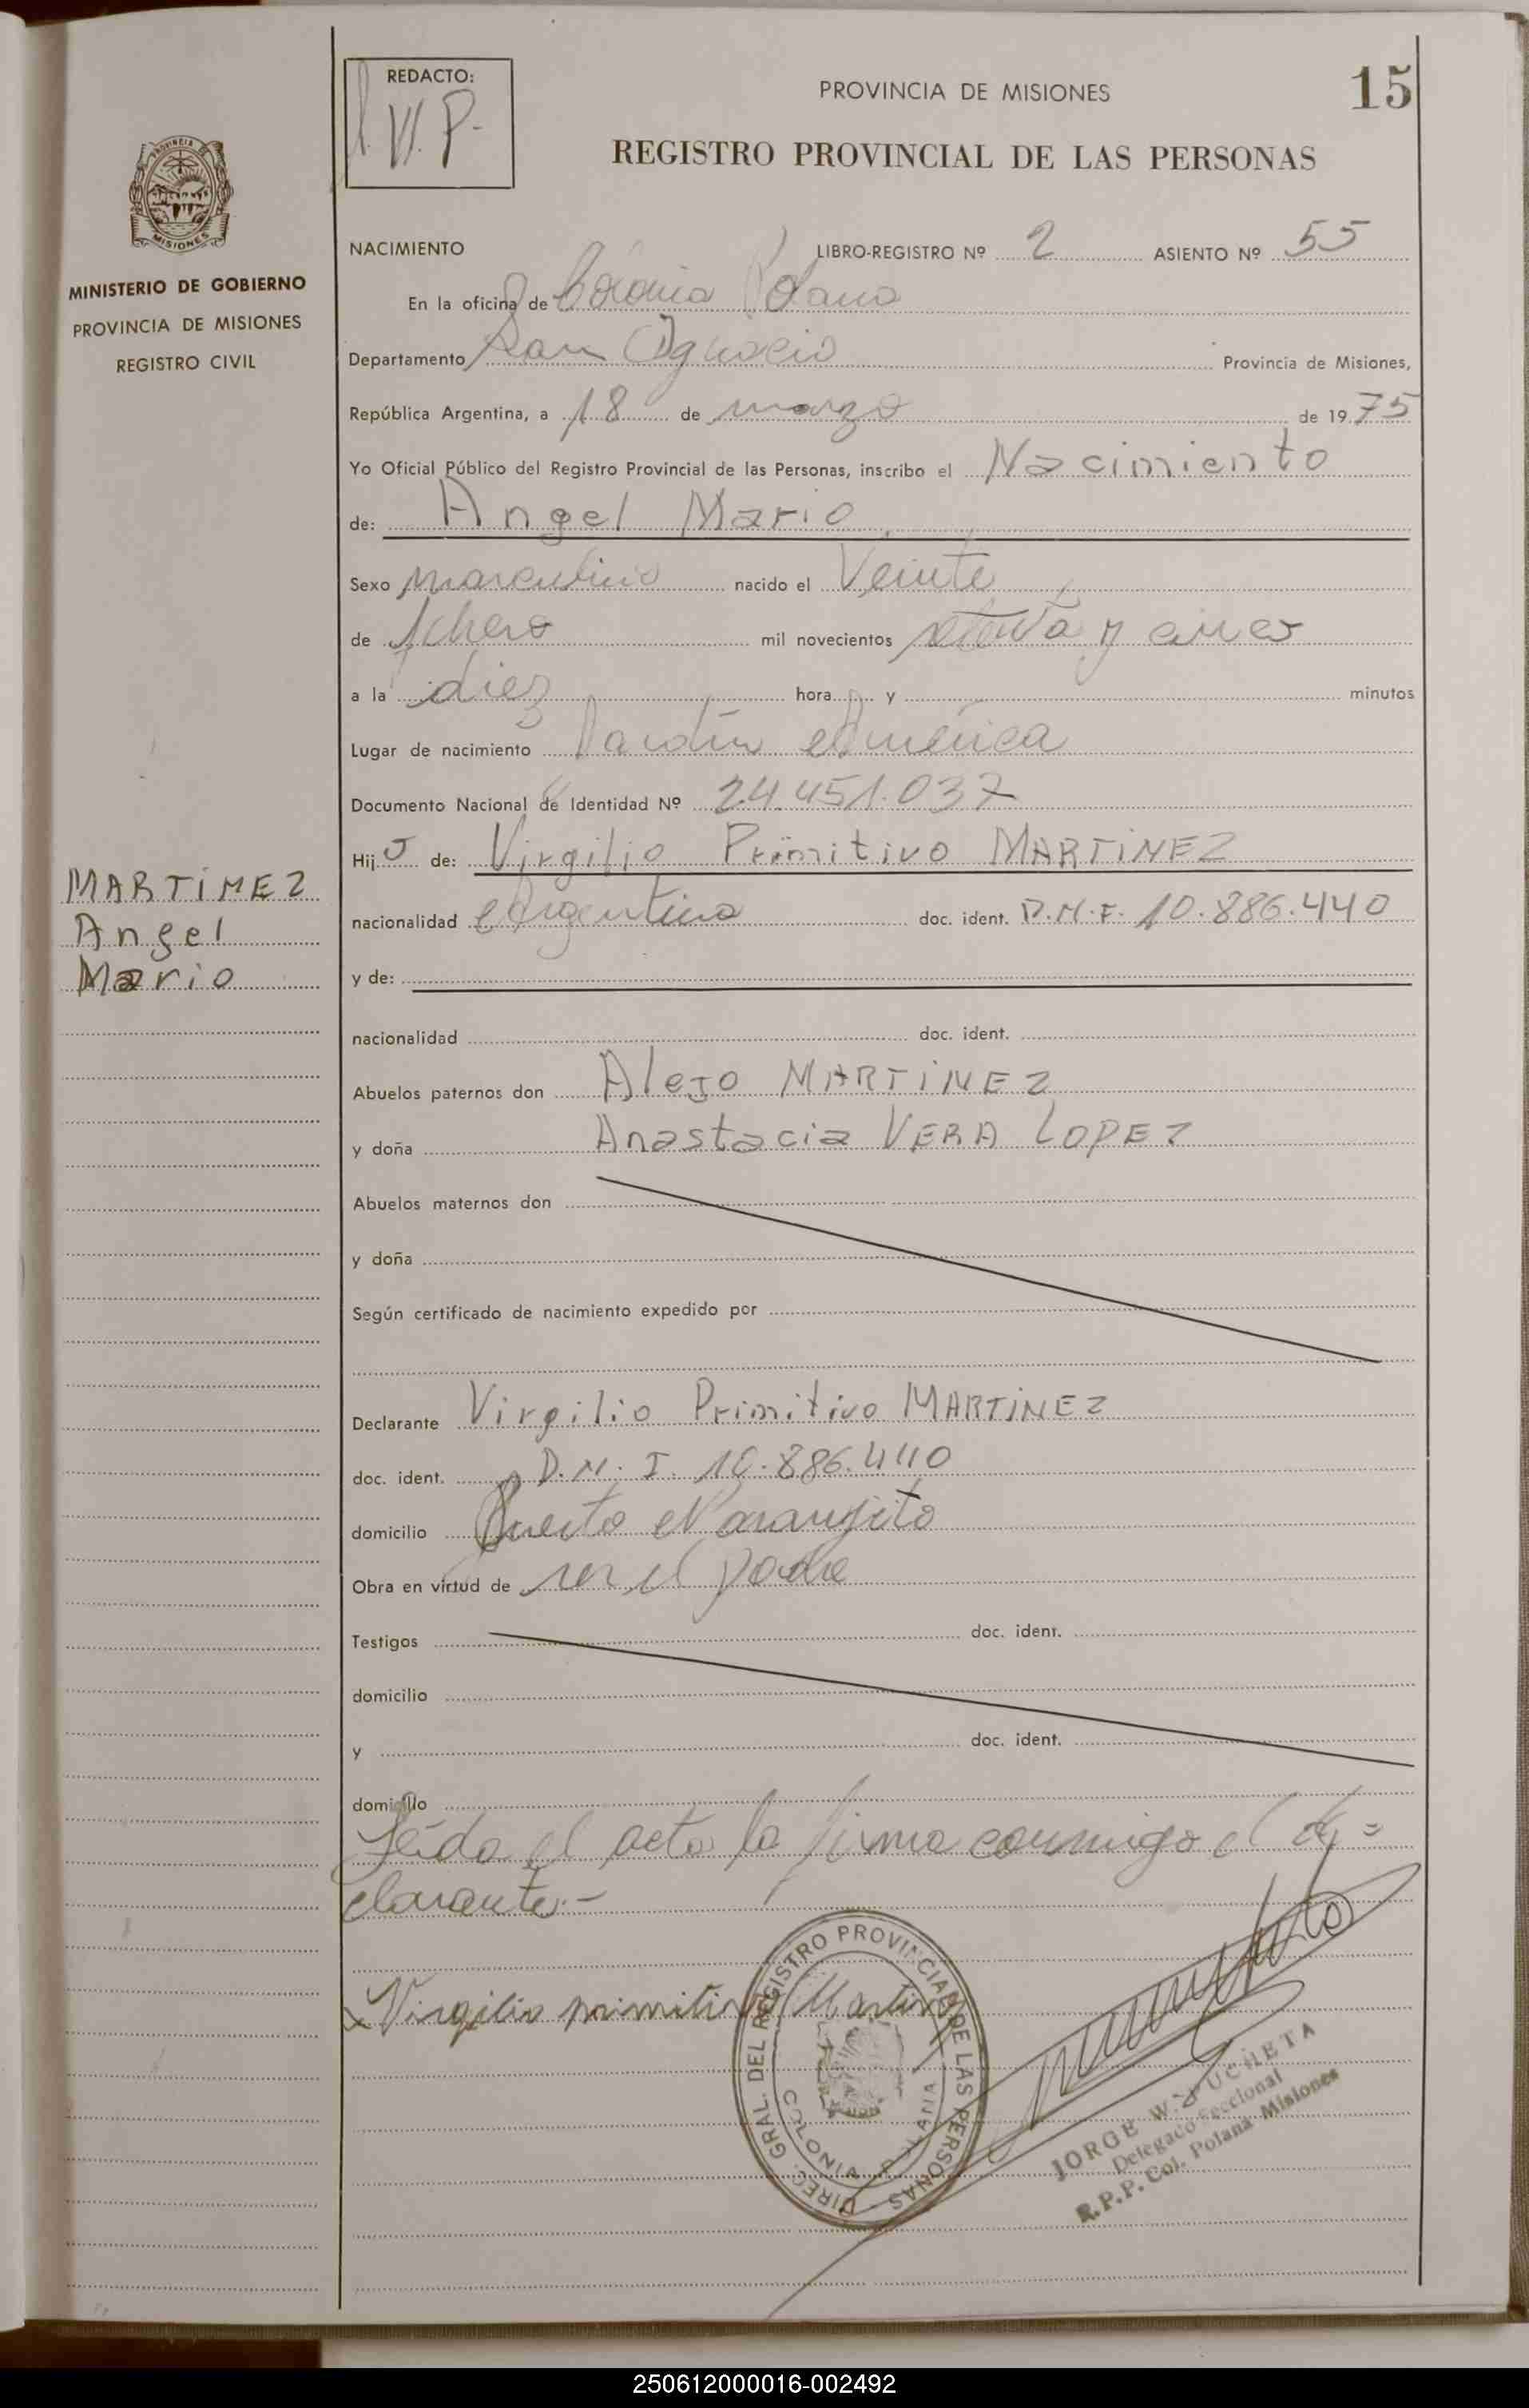 REDACTO:
J. W. P.-
PROVINCIA DE MISIONES
15
REGISTRO PROVINCIAL DE LAS PERSONAS
PROVINCIA DE
MISIONES
MINISTERIO DE GOBIERNO
PROVINCIA DE MISIONES
REGISTRO CIVIL
NACIMIENTO LIBRO-REGISTRO Nº 2 ASIENTO Nº 55
En la oficina de Colonia Polana
Departamento San Ignacio Provincia de Misiones,
República Argentina, a 18 de marzo de 1975
Yo Oficial Público del Registro Provincial de las Personas, inscribo el Nacimiento
de: Angel Mario
Sexo masculino nacido el Veinte
de febrero mil novecientos setenta y cinco
a la diez hora y minutos
Lugar de nacimiento Jardín América
Documento Nacional de Identidad Nº 24.451.037
Hijo de: Virgilio Primitivo MARTINEZ
MARTINEZ
Angel
Mario
nacionalidad Argentina doc. ident. D.N.I. 10.886.440
y de:
nacionalidad doc. ident.
Abuelos paternos don Alejo MARTINEZ
y doña Anastacia VERA LOPEZ
Abuelos maternos don
y doña
Según certificado de nacimiento expedido por
Declarante Virgilio Primitivo MARTINEZ
doc. ident. D.N.I. 10.886.440
domicilio Puerto Naranjito
Obra en virtud de ser el padre
Testigos doc. ident.
domicilio
y doc. ident.
domicilio
Leída el acta la firma conmigo el de=
clarante.-
Virgilio primitivo Martinez
DIREC. GRAL. DEL REGISTRO PROVINCIAL DE LAS PERSONAS
COLONIA POLANA
JORGE W. PUCHETA
Delegado Seccional
R.P.P. Col. Polana-Misiones
250612000016-002492